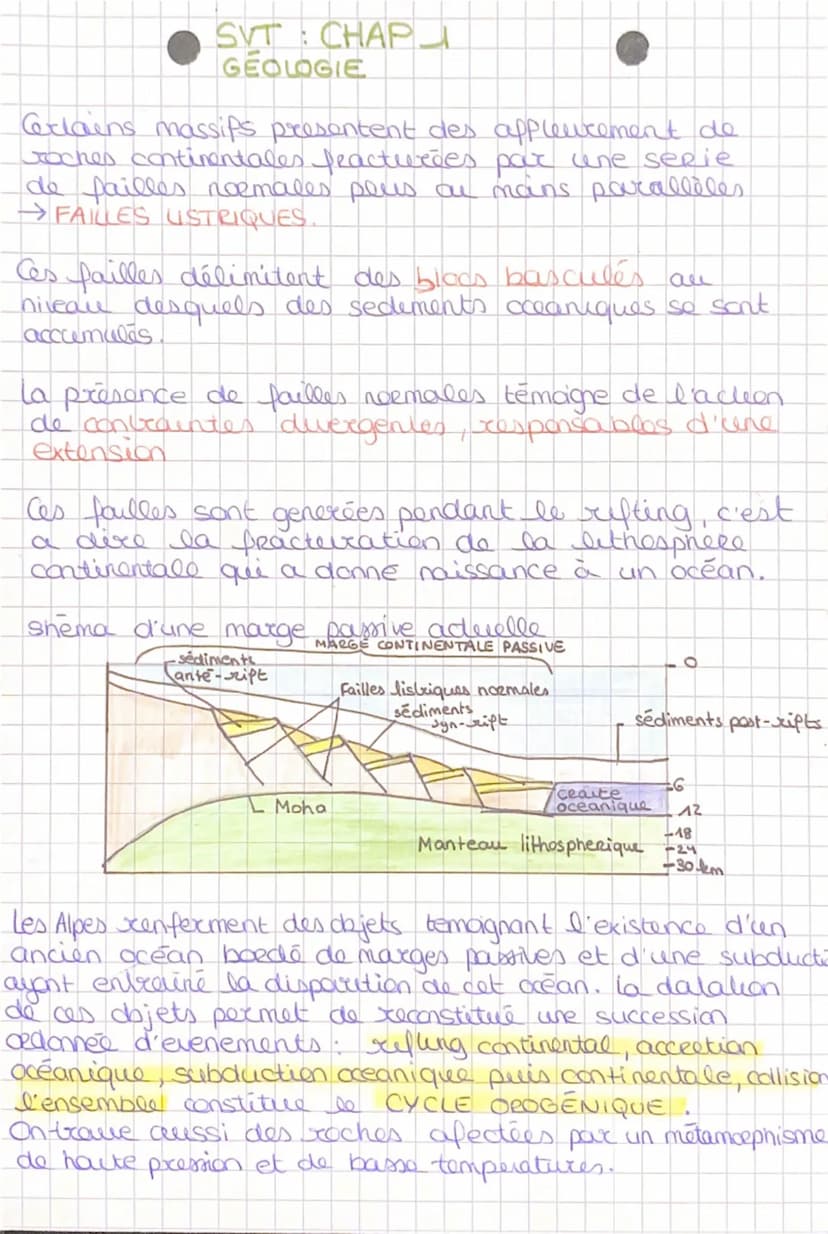 SVT : CHAP 1
GÉOLOGIE
Certains massifs presentent des affleurement de
roches continentales fracturées par une serie
de failles normales peus ou moins parallèles
→ FAILLES LISTRIQUES.
Ces failles délimitent des blocs basculés au
niveau desquels des sediments oceaniques se sont
accumulés.
La présence de failles normales témoigne de l'action
de contraintes divergentes, responsables d'une
extension
Ces failles sont generées pendant le rifting, c'est
a dire la fracturation de la lithosphere
continentale qui a donne naissance à un océan.
shéma d'une marge passive actuelle
MARGE CONTINENTALE PASSIVE
sédiments
anté-rift
Failles listriques normales
sédiments
syn-rift
sédiments post-rifts
0
6
croûte
océanique
12
Moho
18
Manteau lithospherique
24
30 km
Les Alpes renferment des objets temoignant l'existence d'un
ancien océan bordé de marges passives et d'une subducti
ayant entrainé la disparition de cet océan. La datation
de ces objets permet de reconstitué une succession
ordonnée d'evenements : rifting continental, accretion
océanique, subduction oceanique puis continentale, collision
l'ensemble constitue le CYCLE OROGÉNIQUE.
On trouve aussi des roches afectées par un métamorphisme
de haute pression et de basse temperatures.